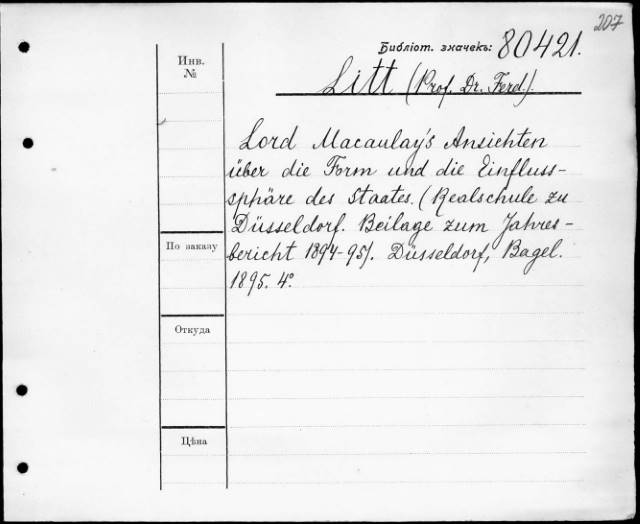 207
Библіот. значекъ: 80421.
Инв.
№
Litt (Prof. Dr. Ferd.).
Lord Macaulay's Ansichten
über die Form und die Einfluss-
sphäre des Staates. (Realschule zu
Düsseldorf. Beilage zum Jahres-
bericht 1894-95). Düsseldorf, Bagel.
1895. 4°
По заказу
Откуда
Цѣна